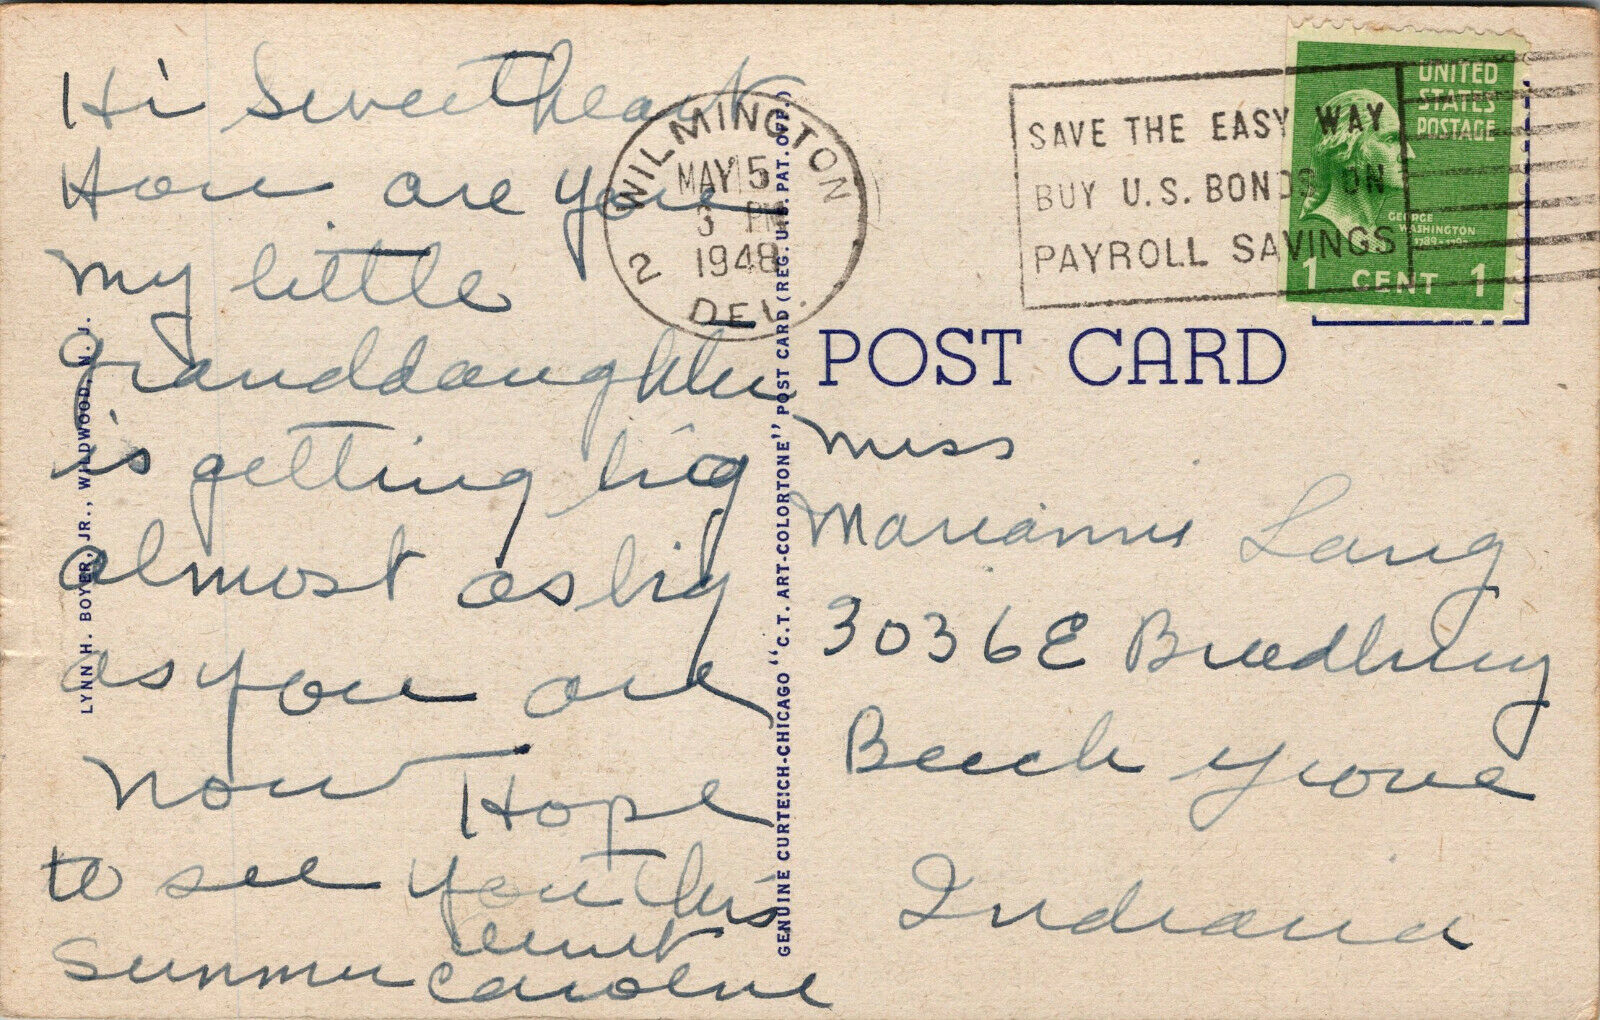 Hi Sweetheart
How are you
my little
Granddaughter
is getting big
almost as big
as you are
now Hope
to see you this
Summer Aunt
Caroline
LYNN H. BOYER, JR., WILDWOOD, N. J.
GENUINE CURTEICH-CHICAGO "C.T. ART-COLORTONE" POST CARD (REG. U.S. PAT. OFF.)
WILMINGTON
MAY 5
3 PM
1948
2 DEL.
SAVE THE EASY WAY
BUY U.S. BONDS ON
PAYROLL SAVINGS
UNITED
STATES
POSTAGE
GEORGE
WASHINGTON
1789-1797
1 CENT 1
POST CARD
Miss
Mariannie Lang
3036 E Bradbury
Beech Grove
Indiana